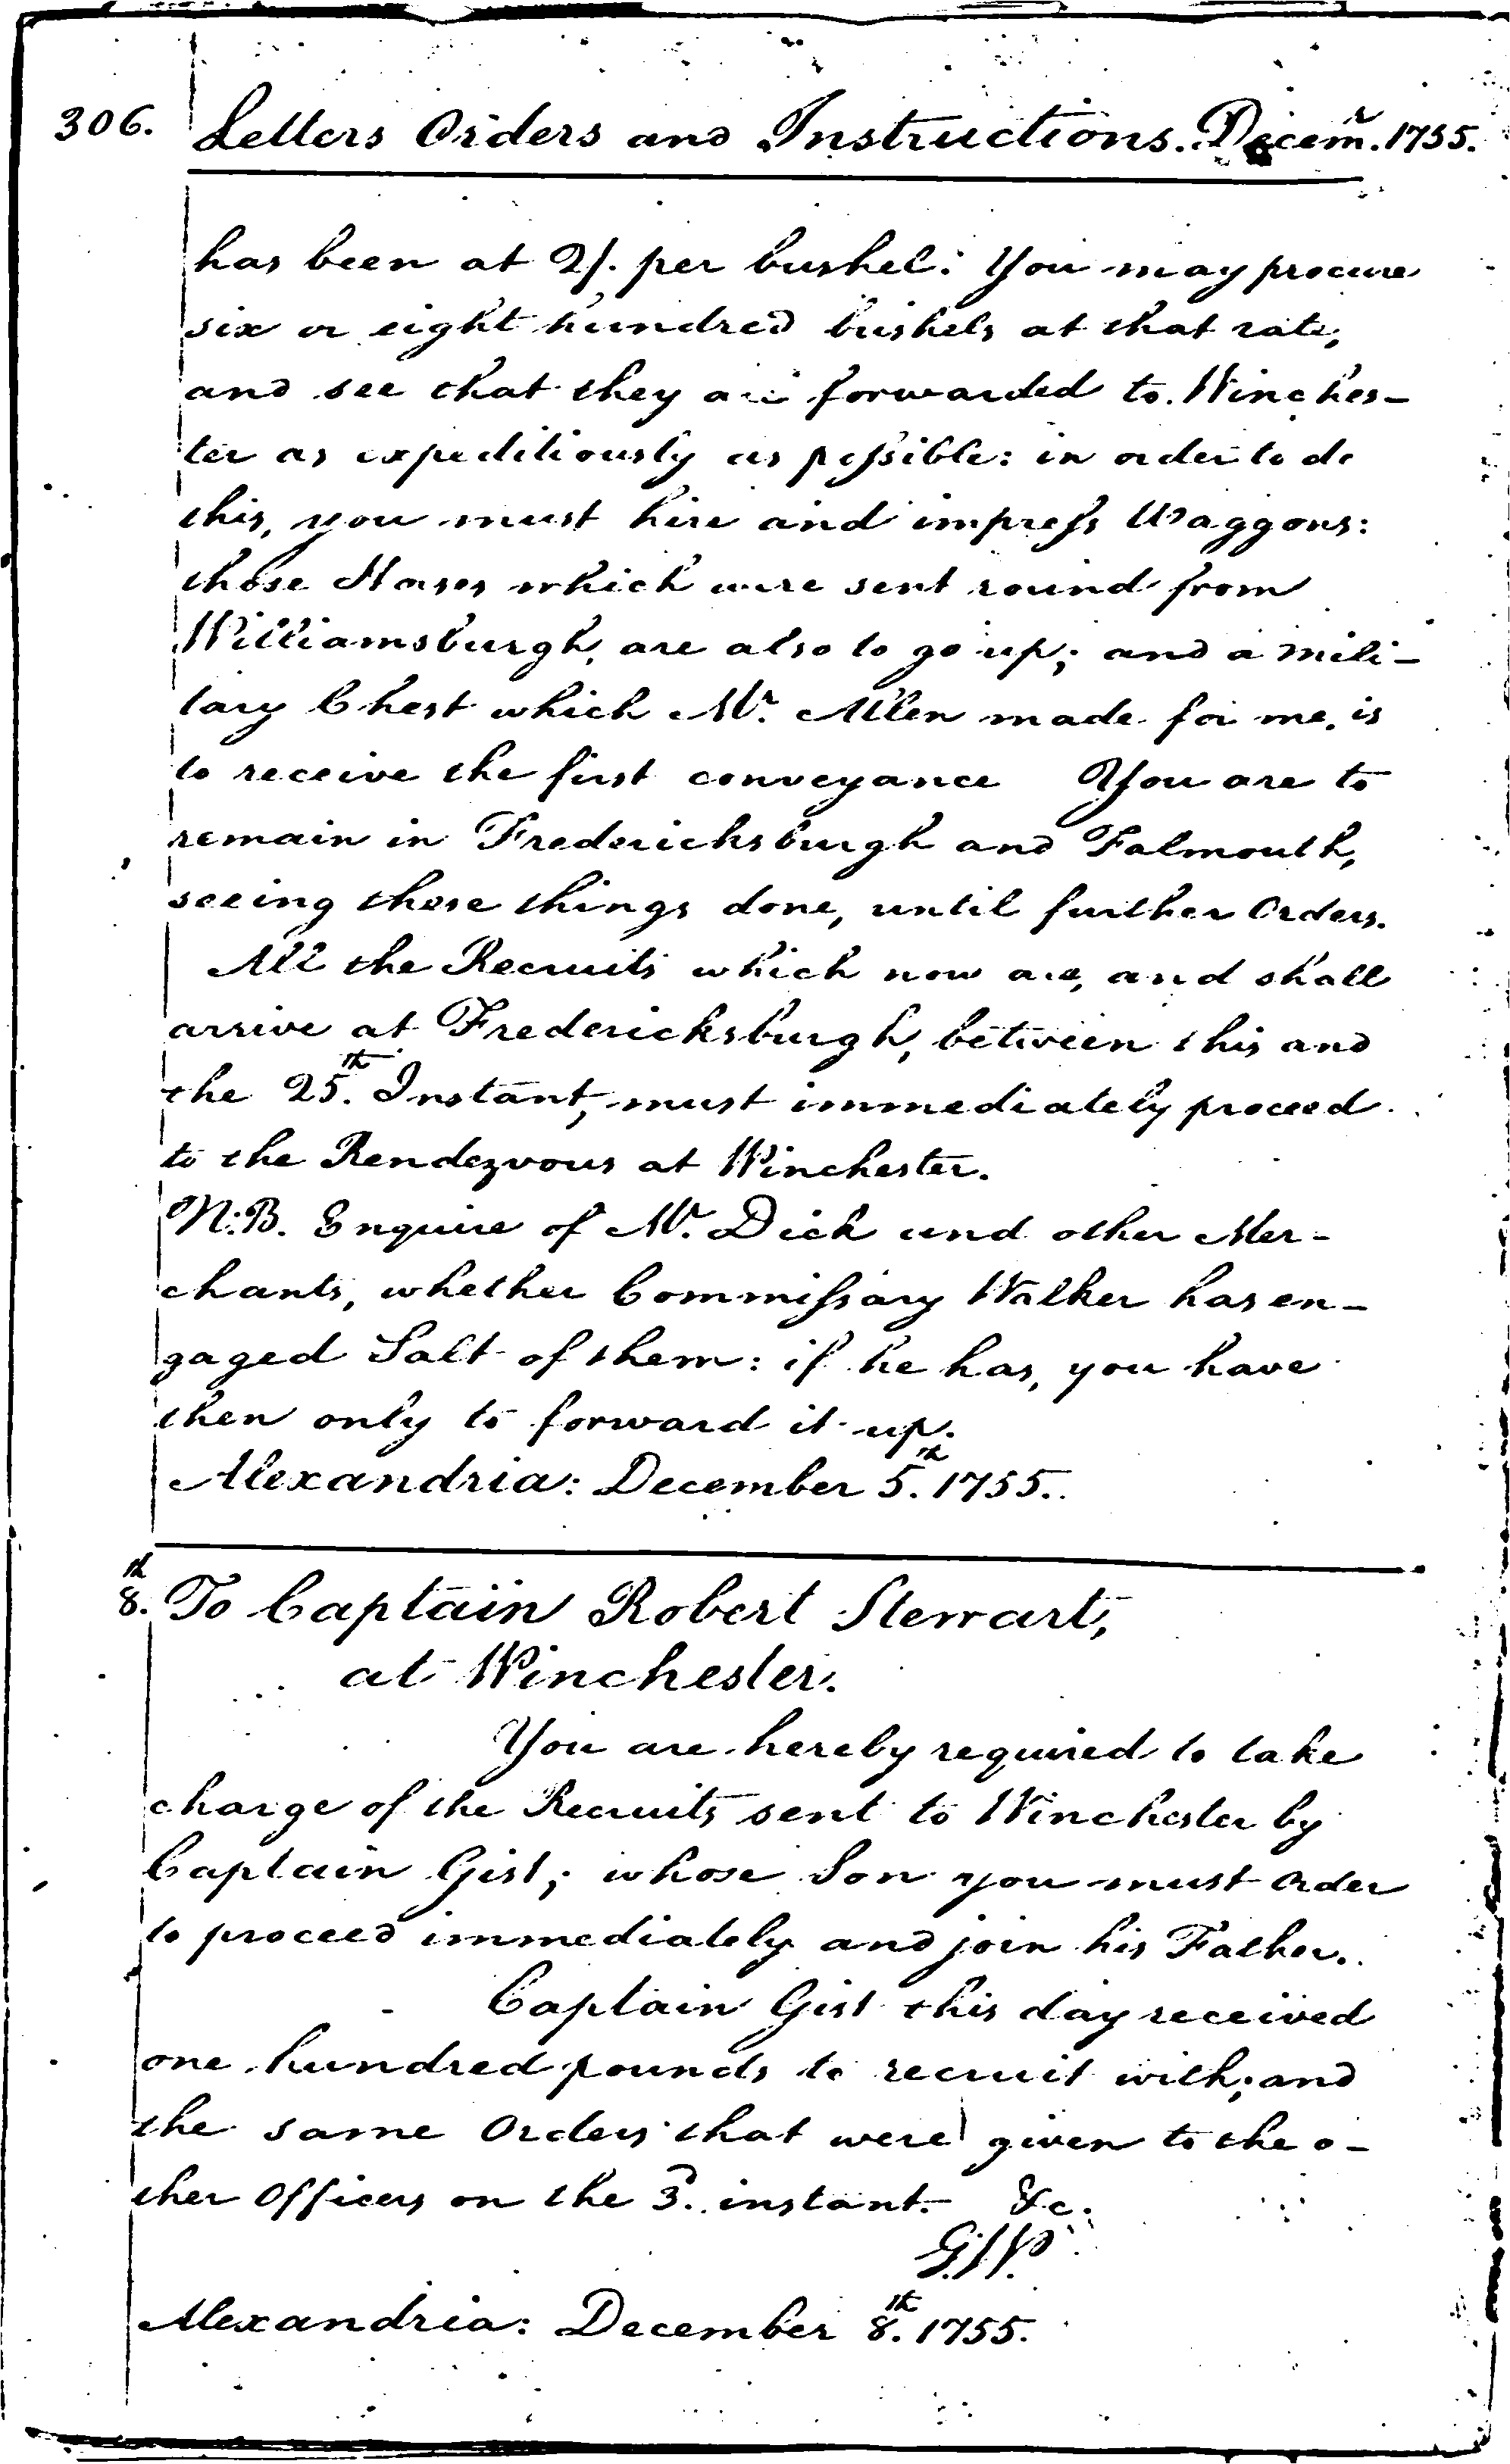 306. Letters Orders and Instructions. Decemr. 1755.
has been at 2/. per bushel: You may procure
six or eight hundred bushels at that rate;
and see that they are forwarded to Winches-
ter as expeditiously as possible: in order to do
this, you must hire and impress Waggons:
those Horses which were sent round from
Williamsburgh, are also to go up; and a mili-
tary Chest which Mr. Allen made for me, is
to receive the first conveyance You are to
remain in Fredericksburgh and Falmouth,
seeing these things done, until further Orders.
All the Recruits which now are, and shall
arrive at Fredericksburgh, between this and
the 25th. Instant, must immediately proceed
to the Rendezvous at Winchester.
N:B. Enquire of Mr. Dick and other Mer-
chants, whether Commissary Walker has en-
gaged Salt of them: if he has, you have
then only to forward it up.
Alexandria: December 5th. 1755.
8th. To Captain Robert Stewart,
at Winchester.
You are hereby required to take
charge of the Recruits sent to Winchester by
Captain Gist; whose Son you must order
to proceed immediately and join his Father.
Captain Gist this day received
one hundred pounds to recruit with; and
the same Orders that were given to the o-
ther Officers on the 3d. instant. &c.
G:W.
Alexandria: December 8th. 1755.